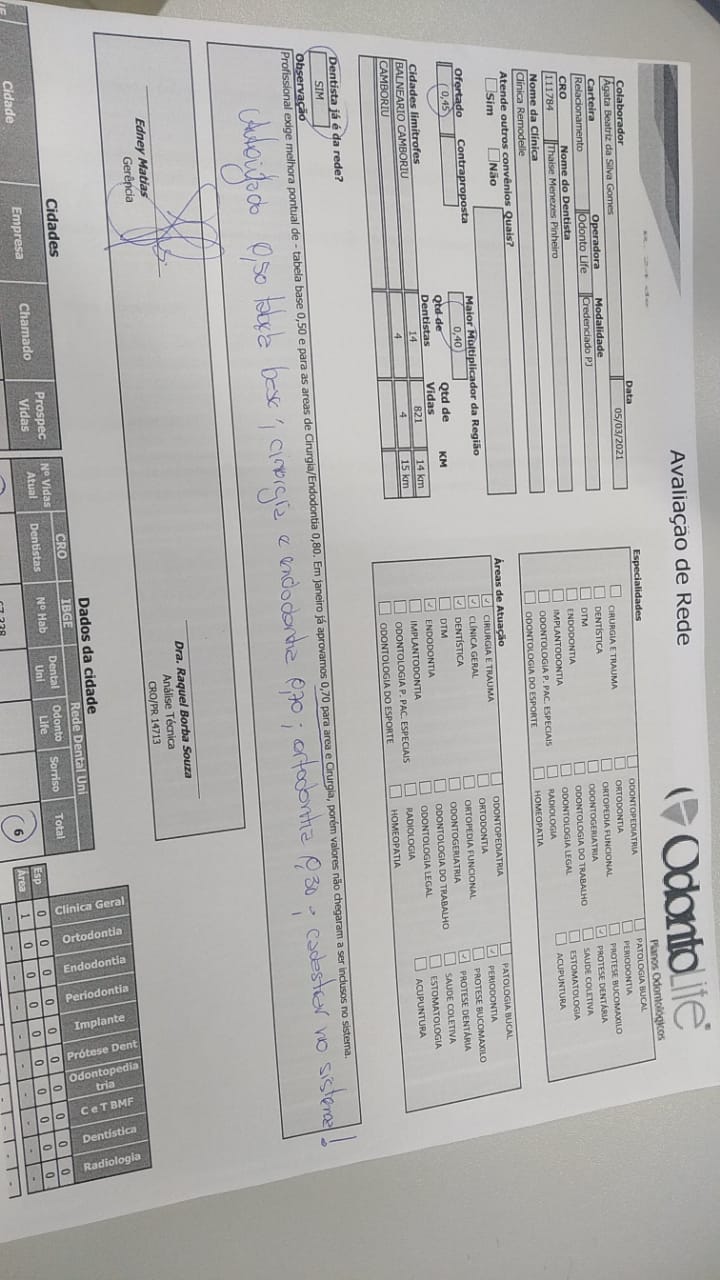 Avaliação de Rede
OdontoLife®
Planos Odontológicos
Data
05/03/2021
Colaborador
Ágata Beatriz da Silva Gomes
Carteira Operadora Modalidade
Relacionamento Odonto Life Credenciado PJ
CRO Nome do Dentista
111784 Thaise Menezes Pinheiro
Nome da Clínica
Clínica Remodelle
Atende outros convênios Quais?
Sim Não
Ofertado Contraproposta Maior Multiplicador da Região
0,45 0,40
Cidades limítrofes Qtd de Dentistas Qtd de Vidas KM
14 821 14 km
BALNEARIO CAMBORIU 4 4 15 km
CAMBORIU
Especialidades
CIRURGIA E TRAUMA
DENTÍSTICA
DTM
ENDODONTIA
IMPLANTODONTIA
ODONTOLOGIA P. PAC. ESPECIAIS
ODONTOLOGIA DO ESPORTE
ODONTOPEDIATRIA
ORTODONTIA
ORTOPEDIA FUNCIONAL
ODONTOGERIATRIA
ODONTOLOGIA DO TRABALHO
ODONTOLOGIA LEGAL
RADIOLOGIA
HOMEOPATIA
PATOLOGIA BUCAL
PERIODONTIA
PROTESE BUCOMAXILO
PROTESE DENTÁRIA
SAUDE COLETIVA
ESTOMATOLOGIA
ACUPUNTURA
Áreas de Atuação
CIRURGIA E TRAUMA
CLÍNICA GERAL
DENTÍSTICA
DTM
ENDODONTIA
IMPLANTODONTIA
ODONTOLOGIA P. PAC. ESPECIAIS
ODONTOLOGIA DO ESPORTE
ODONTOPEDIATRIA
ORTODONTIA
ORTOPEDIA FUNCIONAL
ODONTOGERIATRIA
ODONTOLOGIA DO TRABALHO
ODONTOLOGIA LEGAL
RADIOLOGIA
HOMEOPATIA
PATOLOGIA BUCAL
PERIODONTIA
PROTESE BUCOMAXILO
PROTESE DENTÁRIA
SAUDE COLETIVA
ESTOMATOLOGIA
ACUPUNTURA
Dentista já é da rede?
SIM
Observação
Profissional exige melhora pontual de - tabela base 0,50 e para as areas de Cirurgia/Endodontia 0,80. Em janeiro já aprovamos 0,70 para area e Cirurgia, porém valores não chegaram a ser inclusos no sistema.
Autorizado 0,50 tabela base; cirurgia e endodontia 0,70; ortodontia 0,30 - cadastrar no sistema!
Edney Matias
Gerência
Dra. Raquel Borba Souza
Análise Técnica
CRO/PR 14713
Cidades
Cidade Empresa Chamado Prospec Vidas
Dados da cidade
CRO IBGE Rede Dental Uni
Nº Vidas Atual Dentistas Nº Hab Dental Uni Odonto Life Sorriso Total
6
Clinica Geral Ortodontia Endodontia Periodontia Implante Prótese Dent Odontopedia tria C e T BMF Dentística Radiologia
Esp 0 0 0 0 0 0 0 0 0 0
Área 1 0 0 0 0 0 0 0 0 0